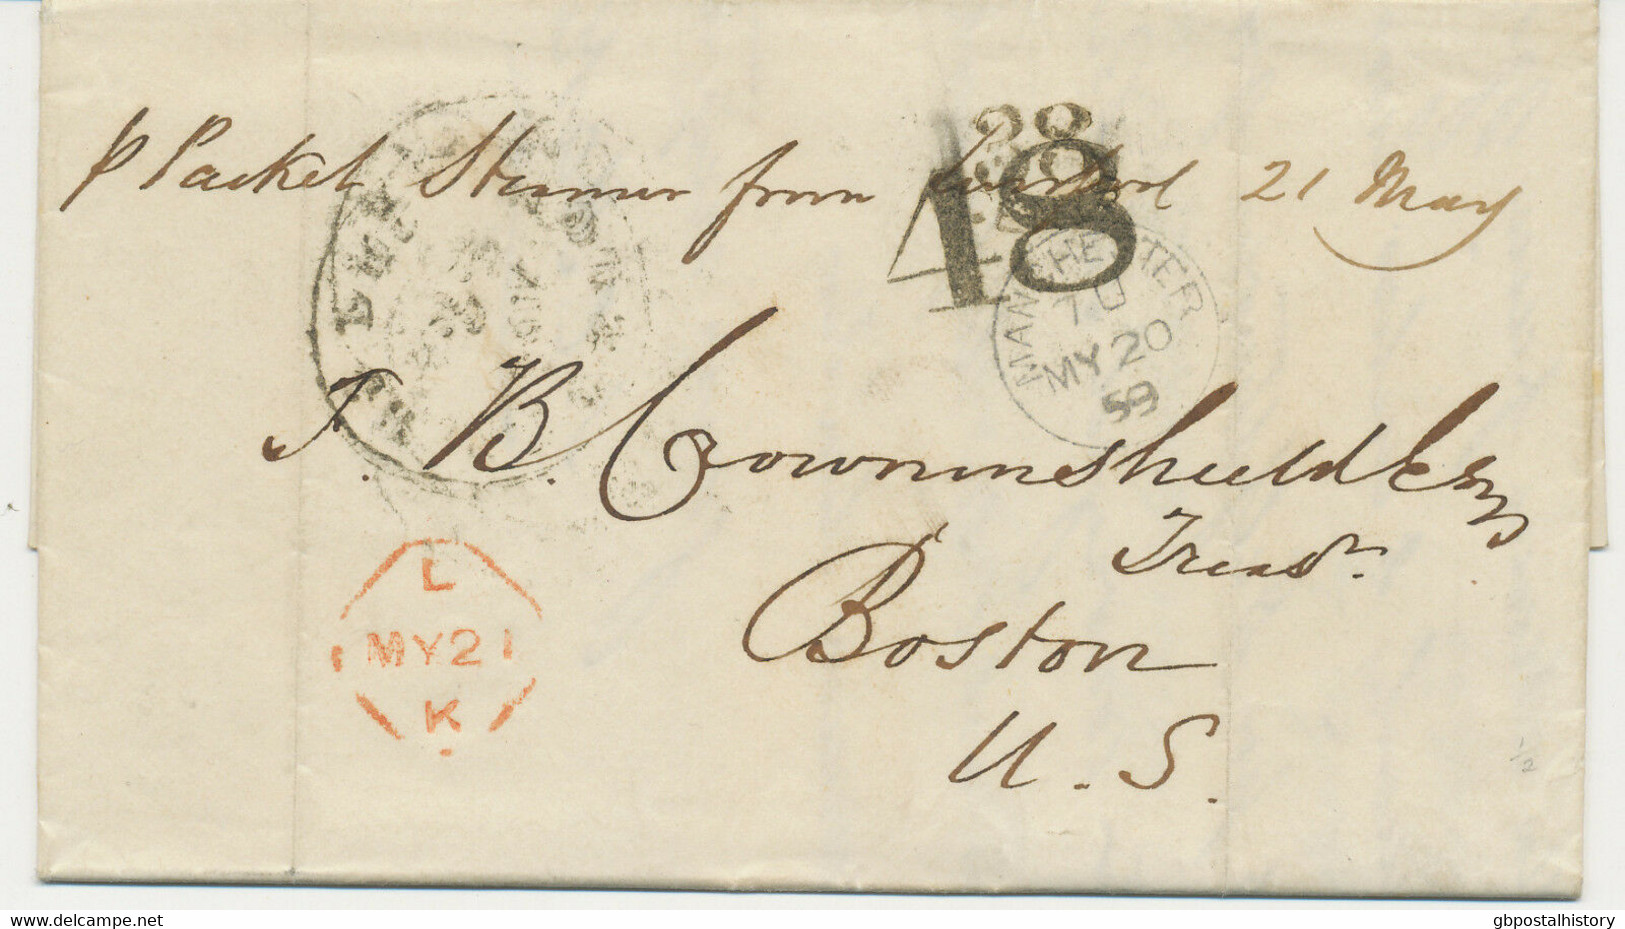 p Packet Steamer from Liverpool 21 May
48
MANCHESTER
MY 20
59
F. B. Crowninshield Esq
Treasr.
Boston
U. S.
L
MY 21
K
1/2
www.delcampe.net
gbpostalhistory